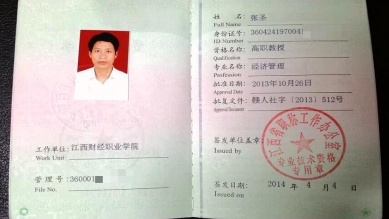 工作单位: 江西财经职业学院
Work Unit
管理号: 360001
File No.
姓名: 张圣
Full Name
身份证号: 360424197004
ID Number
资格名称: 高职教授
Qualification
专业名称: 经济管理
Profession
批准日期: 2013年10月26日
Approval Date
批复文件: 赣人社字〔2013〕512号
Approval Document
签发单位盖章:
Issued by
江西省职称工作办公室
专业技术资格
专用章
签发日期: 2014年4月4日
Issued Date